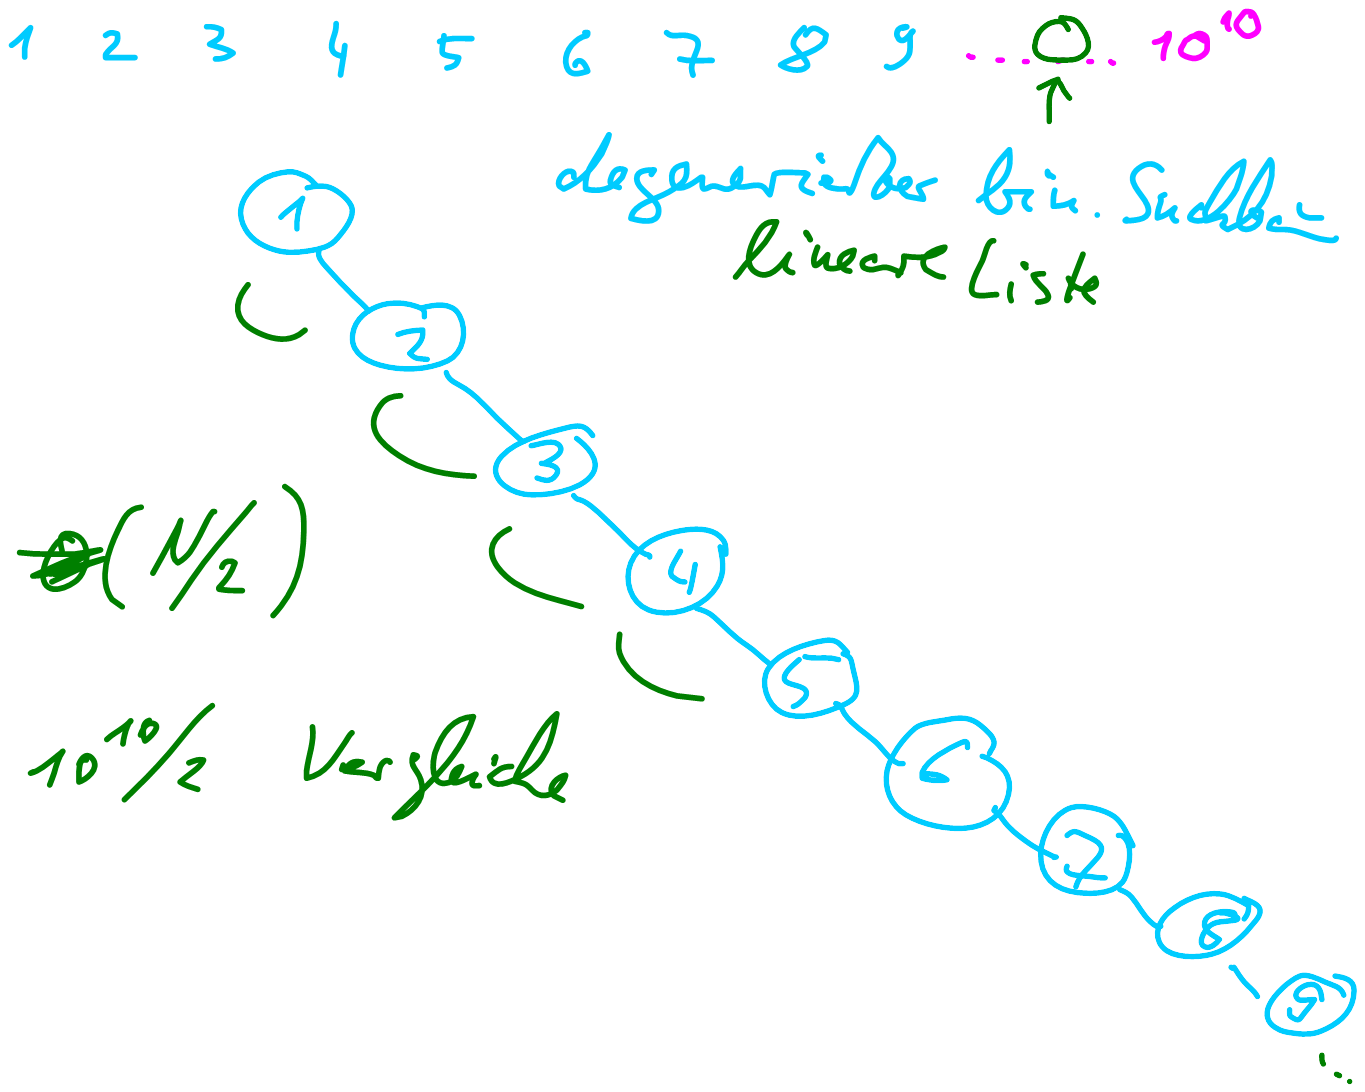 1 2 3 4 5 6 7 8 9 ..... 10^10
degenerierter bin. Suchba
lineare Liste
1
2
3
4
(N/2)
5
10^10/2 Vergleiche
6
7
8
9
...